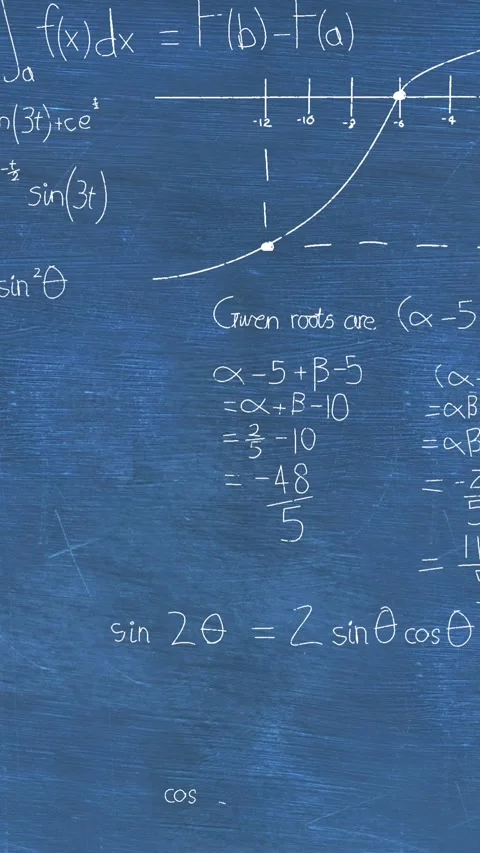 ∫a f(x)dx = F(b) – F(a)
-12 -10 -8 -6 -4
n(3t)+ce^t
-t/2 sin(3t)
sin²θ
Given roots are (α – 5
α – 5 + β – 5
= α + β – 10
= 2/5 – 10
= -48/5
(α-
= αβ
= αβ
= -2/5
= 11
sin 2θ = 2 sinθ cosθ
cos -